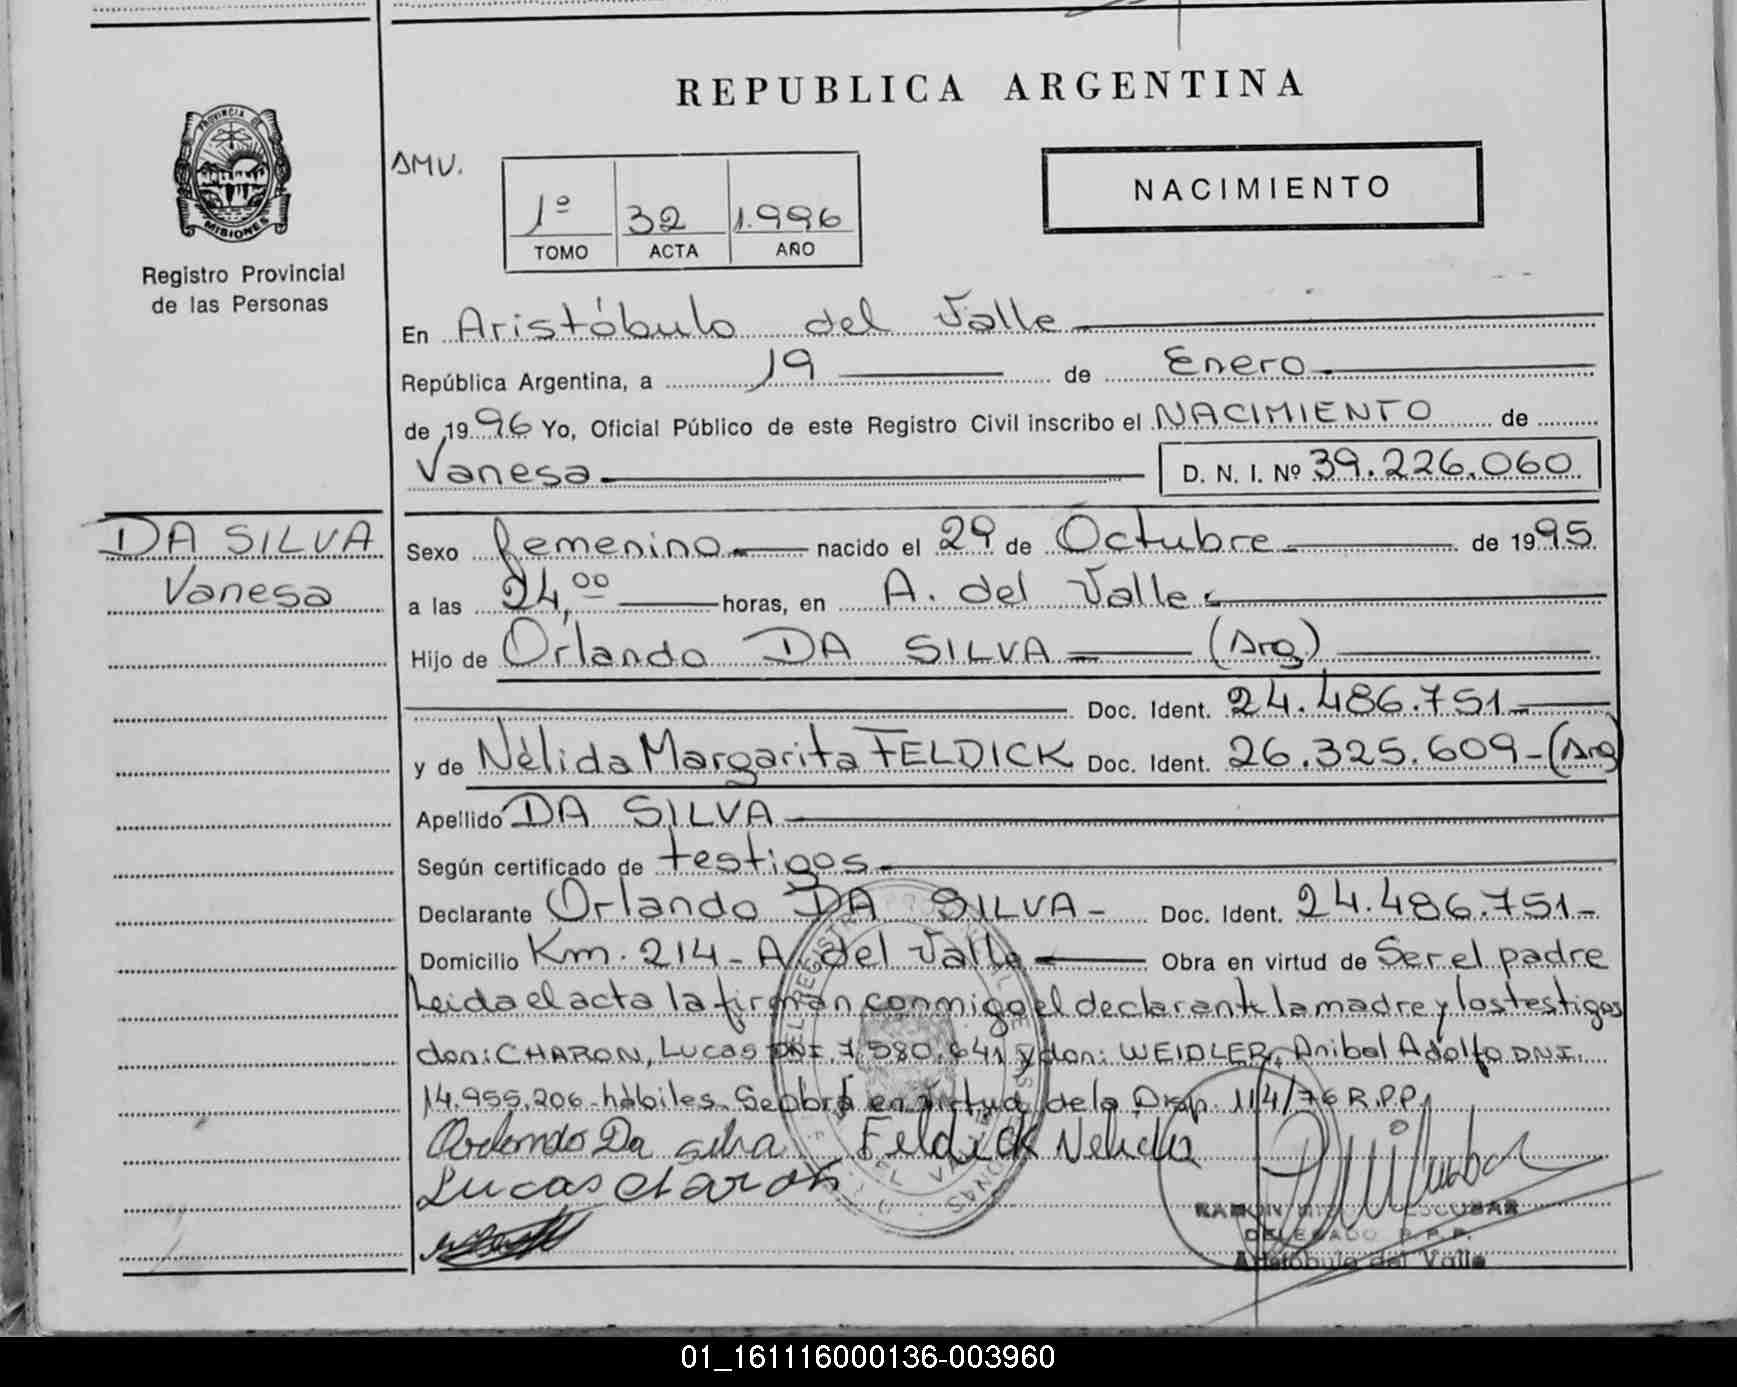 REPUBLICA ARGENTINA
PROVINCIA DE
MISIONES
Registro Provincial
de las Personas
SMV.
1º 32 1.996
TOMO ACTA AÑO
NACIMIENTO
En Aristóbulo del Valle
República Argentina, a 19 de Enero
de 1996 Yo, Oficial Público de este Registro Civil inscribo el NACIMIENTO de
Vanesa D. N. I. Nº 39.226.060
DA SILVA
Vanesa
Sexo femenino nacido el 29 de Octubre de 1995
a las 24,00 horas, en A. del Valle
Hijo de Orlando DA SILVA (Arg)
Doc. Ident. 24.486.751
y de Nélida Margarita FELDICK Doc. Ident. 26.325.609-(Arg)
Apellido DA SILVA
Según certificado de testigos
Declarante Orlando DA SILVA- Doc. Ident. 24.486.751-
Domicilio Km. 214-A. del Valle Obra en virtud de Ser el padre
Leida el acta la firman conmigo el declarante la madre y los testigos
don: CHARON, Lucas DNI. 7.580.641 y don: WEIDLER, Anibal Adolfo DNI.
14.955.206-hábiles. Se obra en virtud de la Disp. 114/76 R.P.P.
Orlando Da silva Feldick Nelida
Lucas charon
RAMON ESCOBAR
DELEGADO R.P.P.
Aristóbulo del Valle
01_161116000136-003960